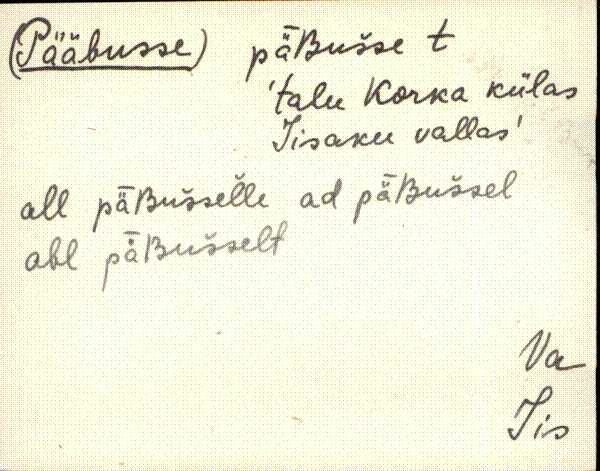 (Pääbusse) pä̅Bušse t
'talu Korka külas
Iisaku vallas'
all pä̅Bušselle ad pä̅Bušsel
abl pä̅Bušselt
Va
Iis